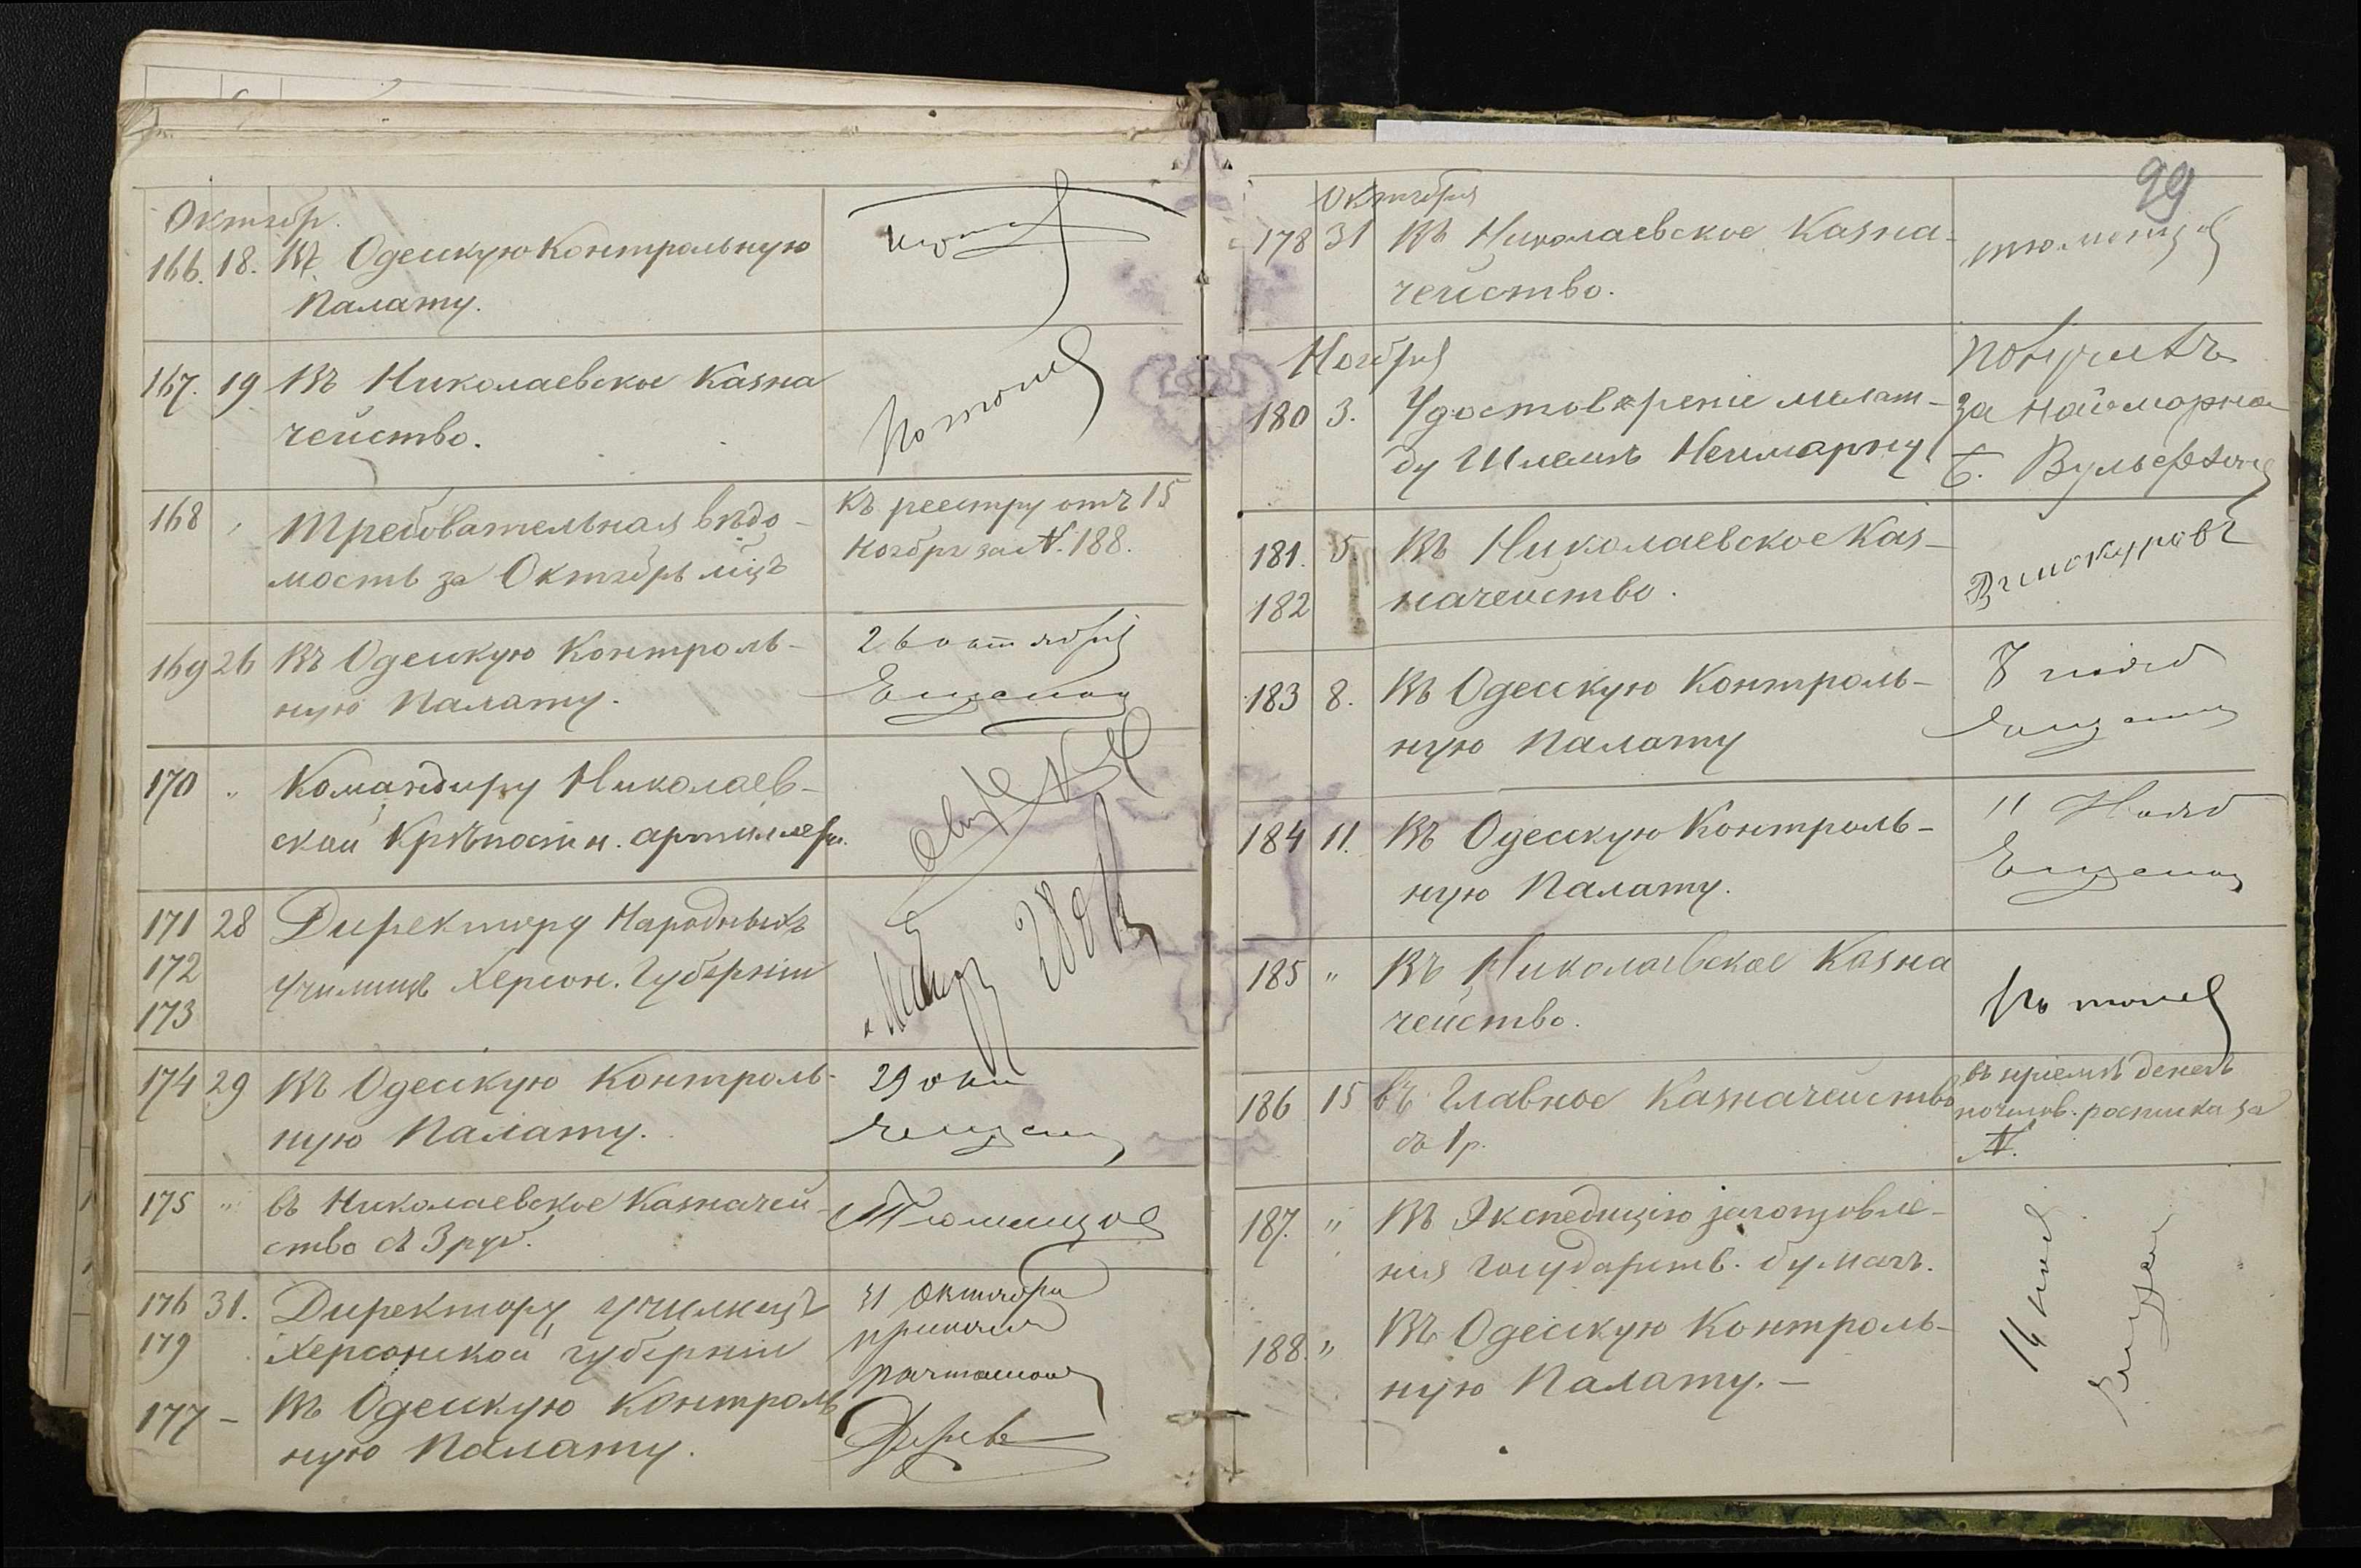 Октябр.
166. 18. Въ Одесскую Контрольную
Палату.
167. 19 Въ Николаевское Казна
чейство. Потоцк
168 Требовательная вѣдо-
мость за Октябрь мцъ
къ реестру отъ 15
Ноября за N. 188.
169 26 Въ Одесскую Контроль-
ную Палату.
26 октября
170 " Командиру Николаев-
ской Крѣпостн. артиллери.
171 28 Директору Народныхъ
172 Училищъ Херсон. Губерніи
173
28 ок
174 29 Въ Одесскую Контроль-
ную Палату.
29 окт
175 " въ Николаевское Казначей-
ство съ 3 руб.
176 31. Директору училищъ
179 Херсонской губерніи
31 Октября
177 - Въ Одесскую Контроль
ную Палату.
99
Октября
178 31 Въ Николаевское Казна-
чейство.
Ноября
180 3. Удостовѣреніе меламе-
ду Шлемѣ Неймарку
Получилъ
за Наймарка
Б. Вульфсон
181. 5. Въ Николаевское Каз-
182 начейство.
Винокуровъ
183 8. Въ Одесскую Контроль-
ную Палату
8 нояб
184 11. Въ Одесскую Контроль-
ную Палату.
11 Нояб
185 " Въ Николаевское Казна
чейство.
186 15 въ Главное Казначейство
съ 1 р.
въ пріемѣ денегъ
почтов. росписка за
N.
187. " Въ Экспедицію заготовле-
нія государств. бумагъ.
188. " Въ Одесскую Контроль-
ную Палату. -